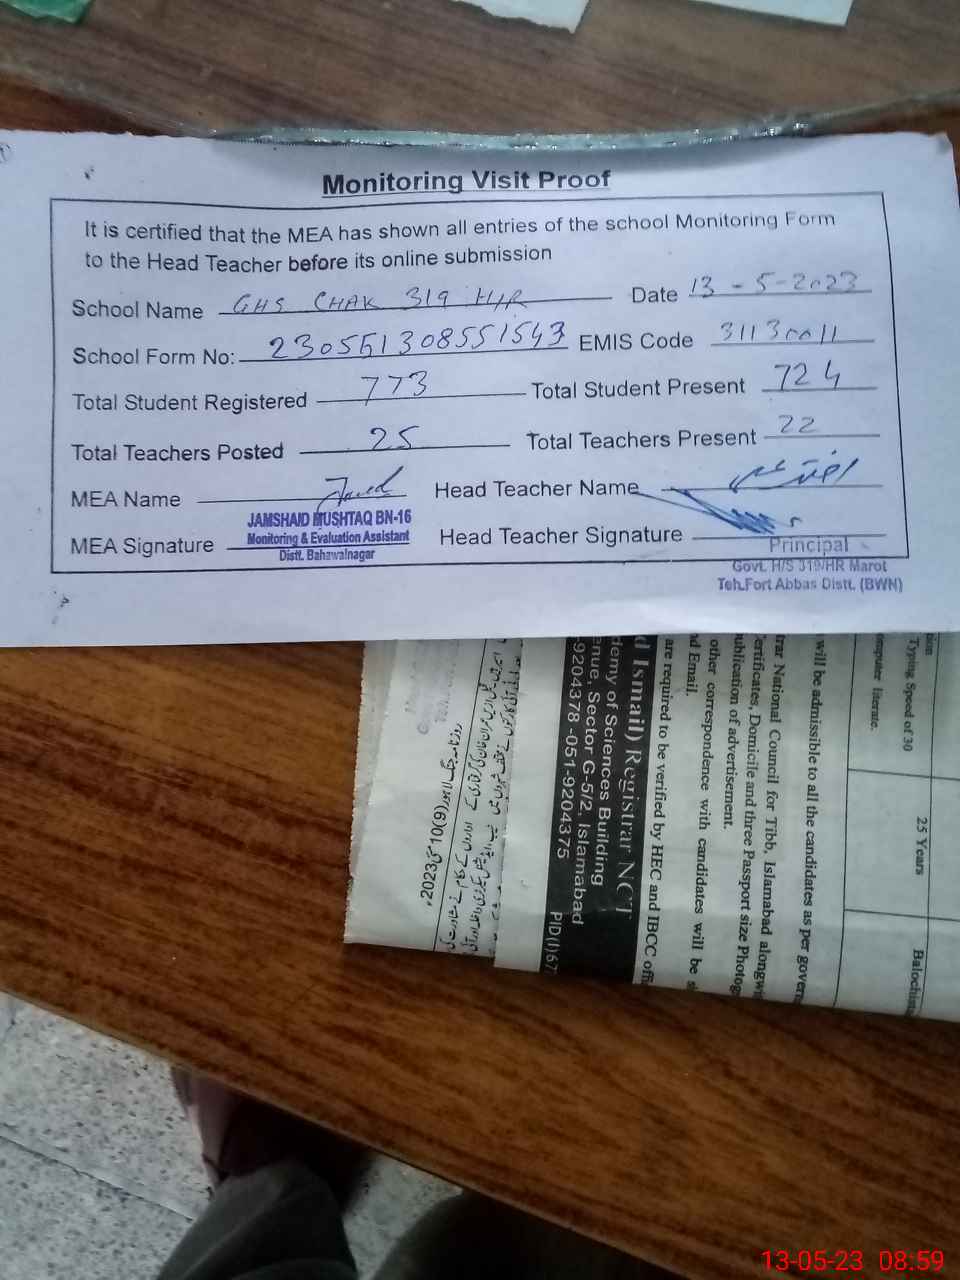 Monitoring Visit Proof
It is certified that the MEA has shown all entries of the school Monitoring Form
to the Head Teacher before its online submission
School Name GHS CHAK 319 H/R Date 13-5-2023
School Form No: 230551308551543 EMIS Code 31130011
Total Student Registered 773 Total Student Present 724
Total Teachers Posted 25 Total Teachers Present 22
MEA Name Head Teacher Name
JAMSHAID MUSHTAQ BN-16
MEA Signature Monitoring & Evaluation Assistant Head Teacher Signature
Distt. Bahawalnagar
Principal
Govt. H/S 319/HR Marot
Teh.Fort Abbas Distt. (BWN)
Typing Speed of 30
computer literate.
25 Years
will be admissible to all the candidates as per
National Council for Tibb, Islamabad
ertificates, Domicile and three Passport size
ublication of advertisement.
other correspondence with candidates will be
nd Email.
are required to be verified by HEC and IBCC
d Ismail) Registrar NCT
demy of Sciences Building
enue, Sector G-5/2, Islamabad
-9204378 -051-9204375
PID(I)67
13-05-23 08:59